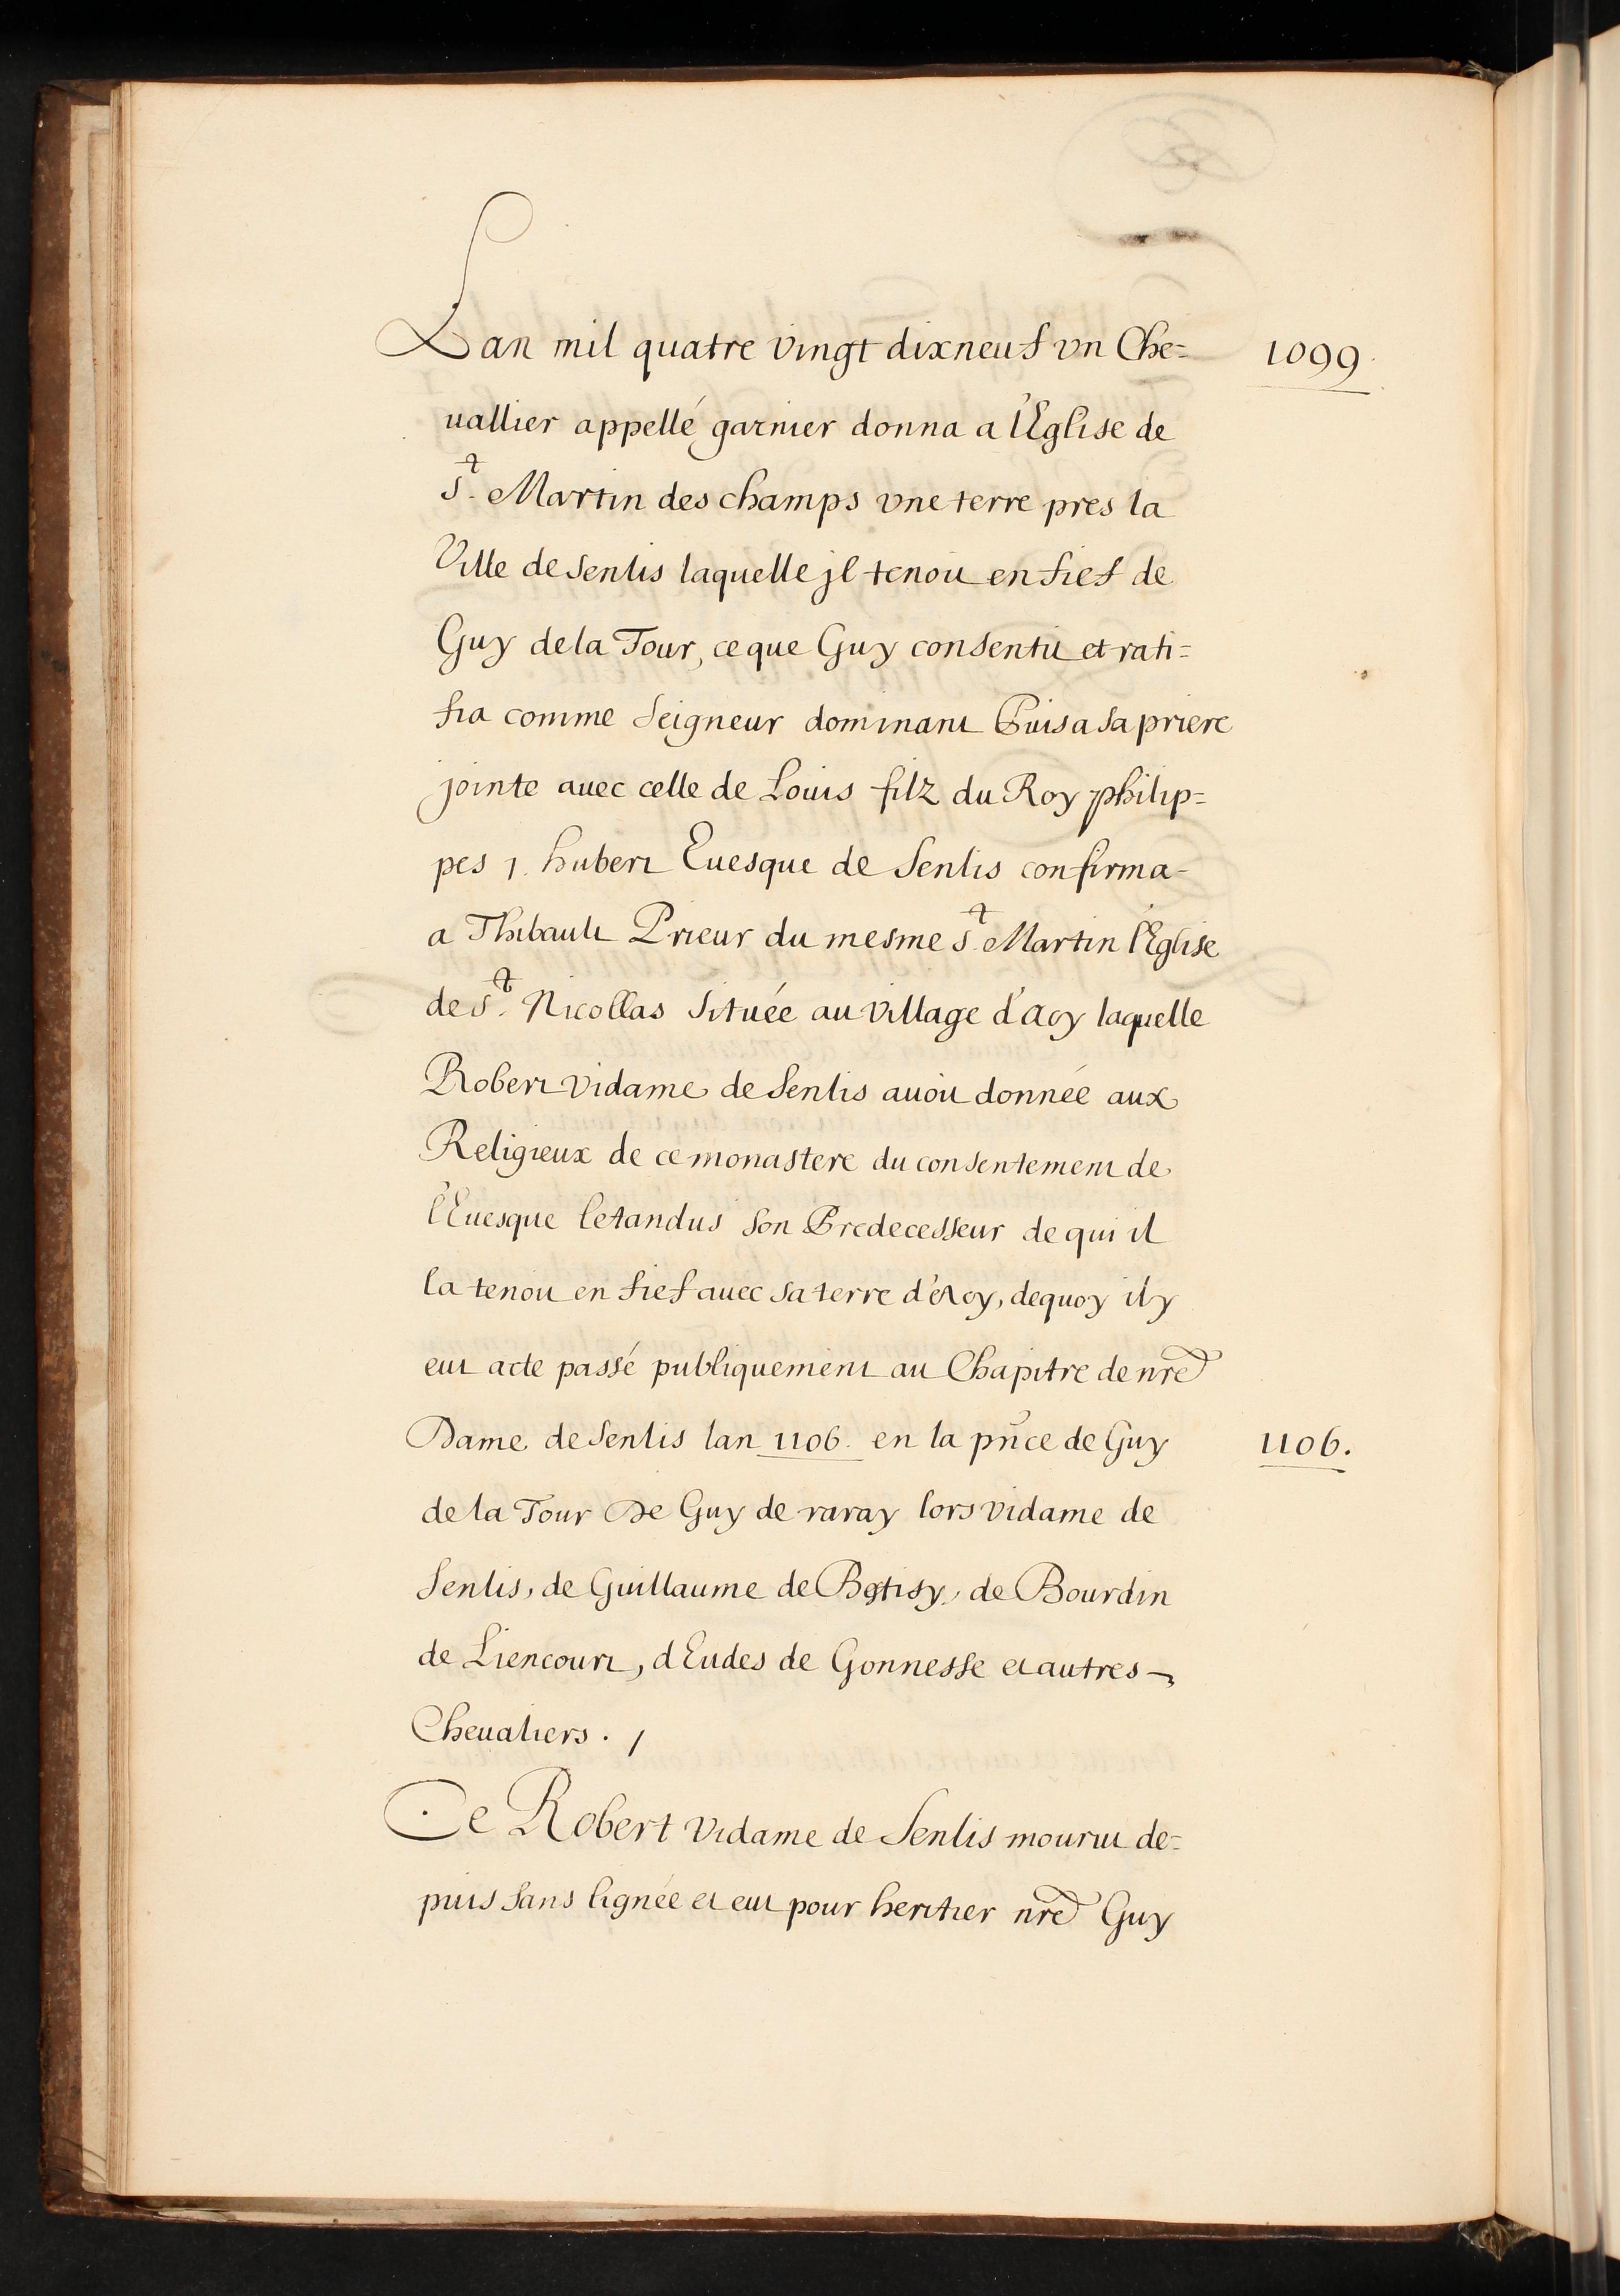 Lan mil quatre vingt dixneuf vn Che=
1099.
uallier appellé garnier donna a l'Eglise de
St. Martin des champs vne terre pres la
Ville de Senlis laquelle jl tenoit en fief de
Guy de la Tour, ce que Guy consentit et rati=
fia comme Seigneur dominant Puis a sa priere
jointe auec celle de Louis filz du Roy philip=
pes 1. hubert Euesque de Senlis confirma
a Thibault Prieur du mesme St. Martin l'Eglise
de St. Nicollas Située au Village d'Acy laquelle
Robert Vidame de Senlis auoit donnée aux
Religieux de ce monastere du consentement de
l'Euesque letandus Son Predecesseur de qui il
la tenoit en fief auec sa terre d'Acy, dequoy il y
eut acte passé publiquement au Chapitre de nre
Dame de Senlis lan 1106. en la pnce de Guy
1106.
de la Tour De Guy de raray lors vidame de
Senlis, de Guillaume de Betisy, de Bourdin
de Liencourt, d'Eudes de Gonnesse et autres
Cheualiers. /
Ce Robert Vidame de Senlis mourut de=
puis Sans lignée et eut pour heritier nre Guy